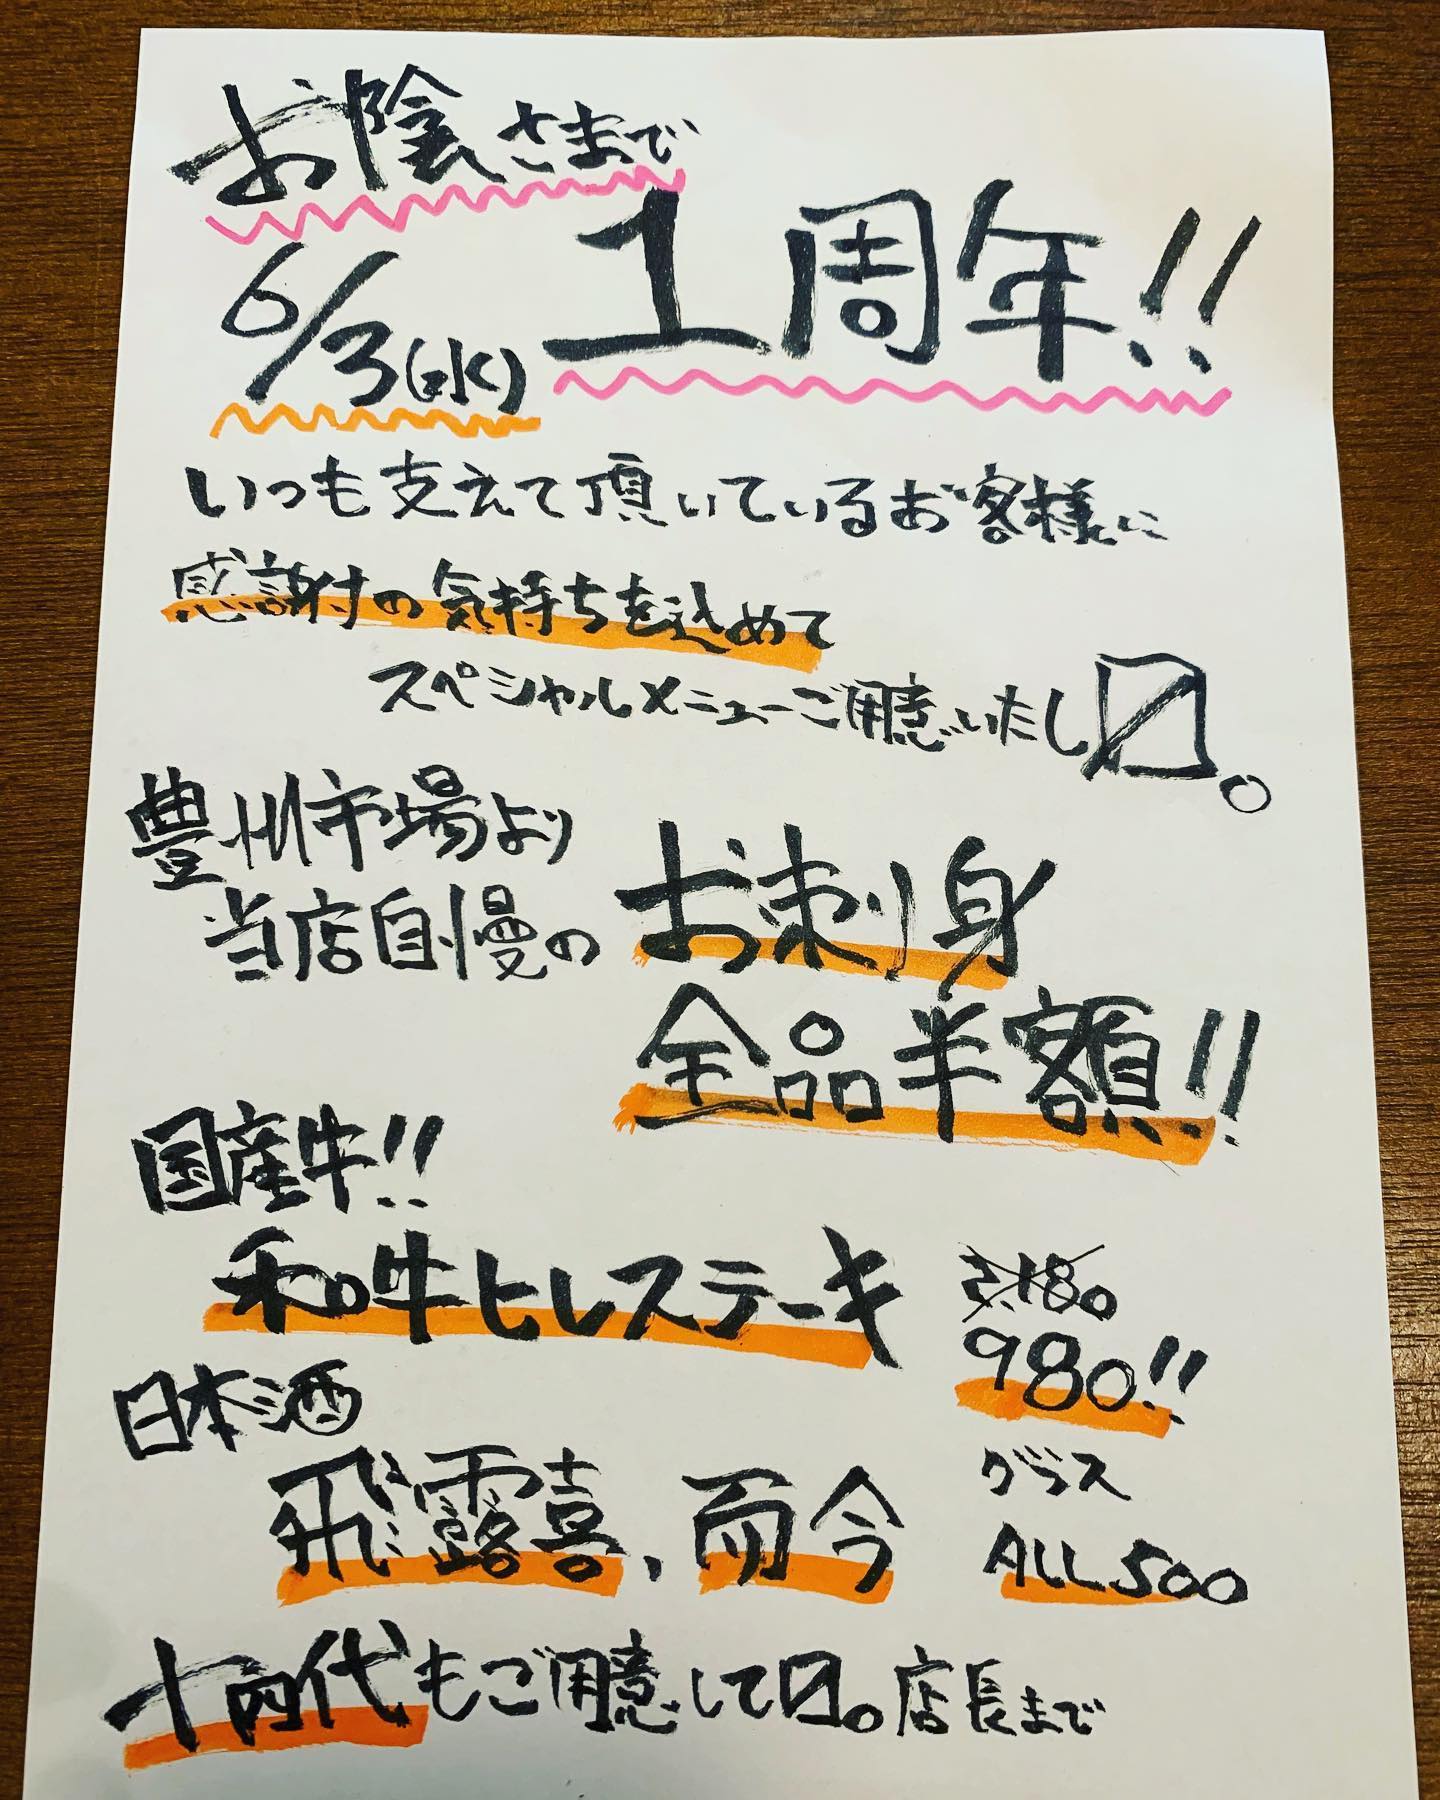 お陰さまで
1周年!!
6/3(水)
いつも支えて頂いているお客様に
感謝の気持ちを込めて
スペシャルメニューご用意いたし〼。
豊州市場より
当店自慢の
お刺身
全品半額!!
国産牛!!
和牛ヒレステーキ
2.180
980!!
日本酒
飛露喜、而今
グラス
ALL 500
十四代もご用意して〼。店長まで